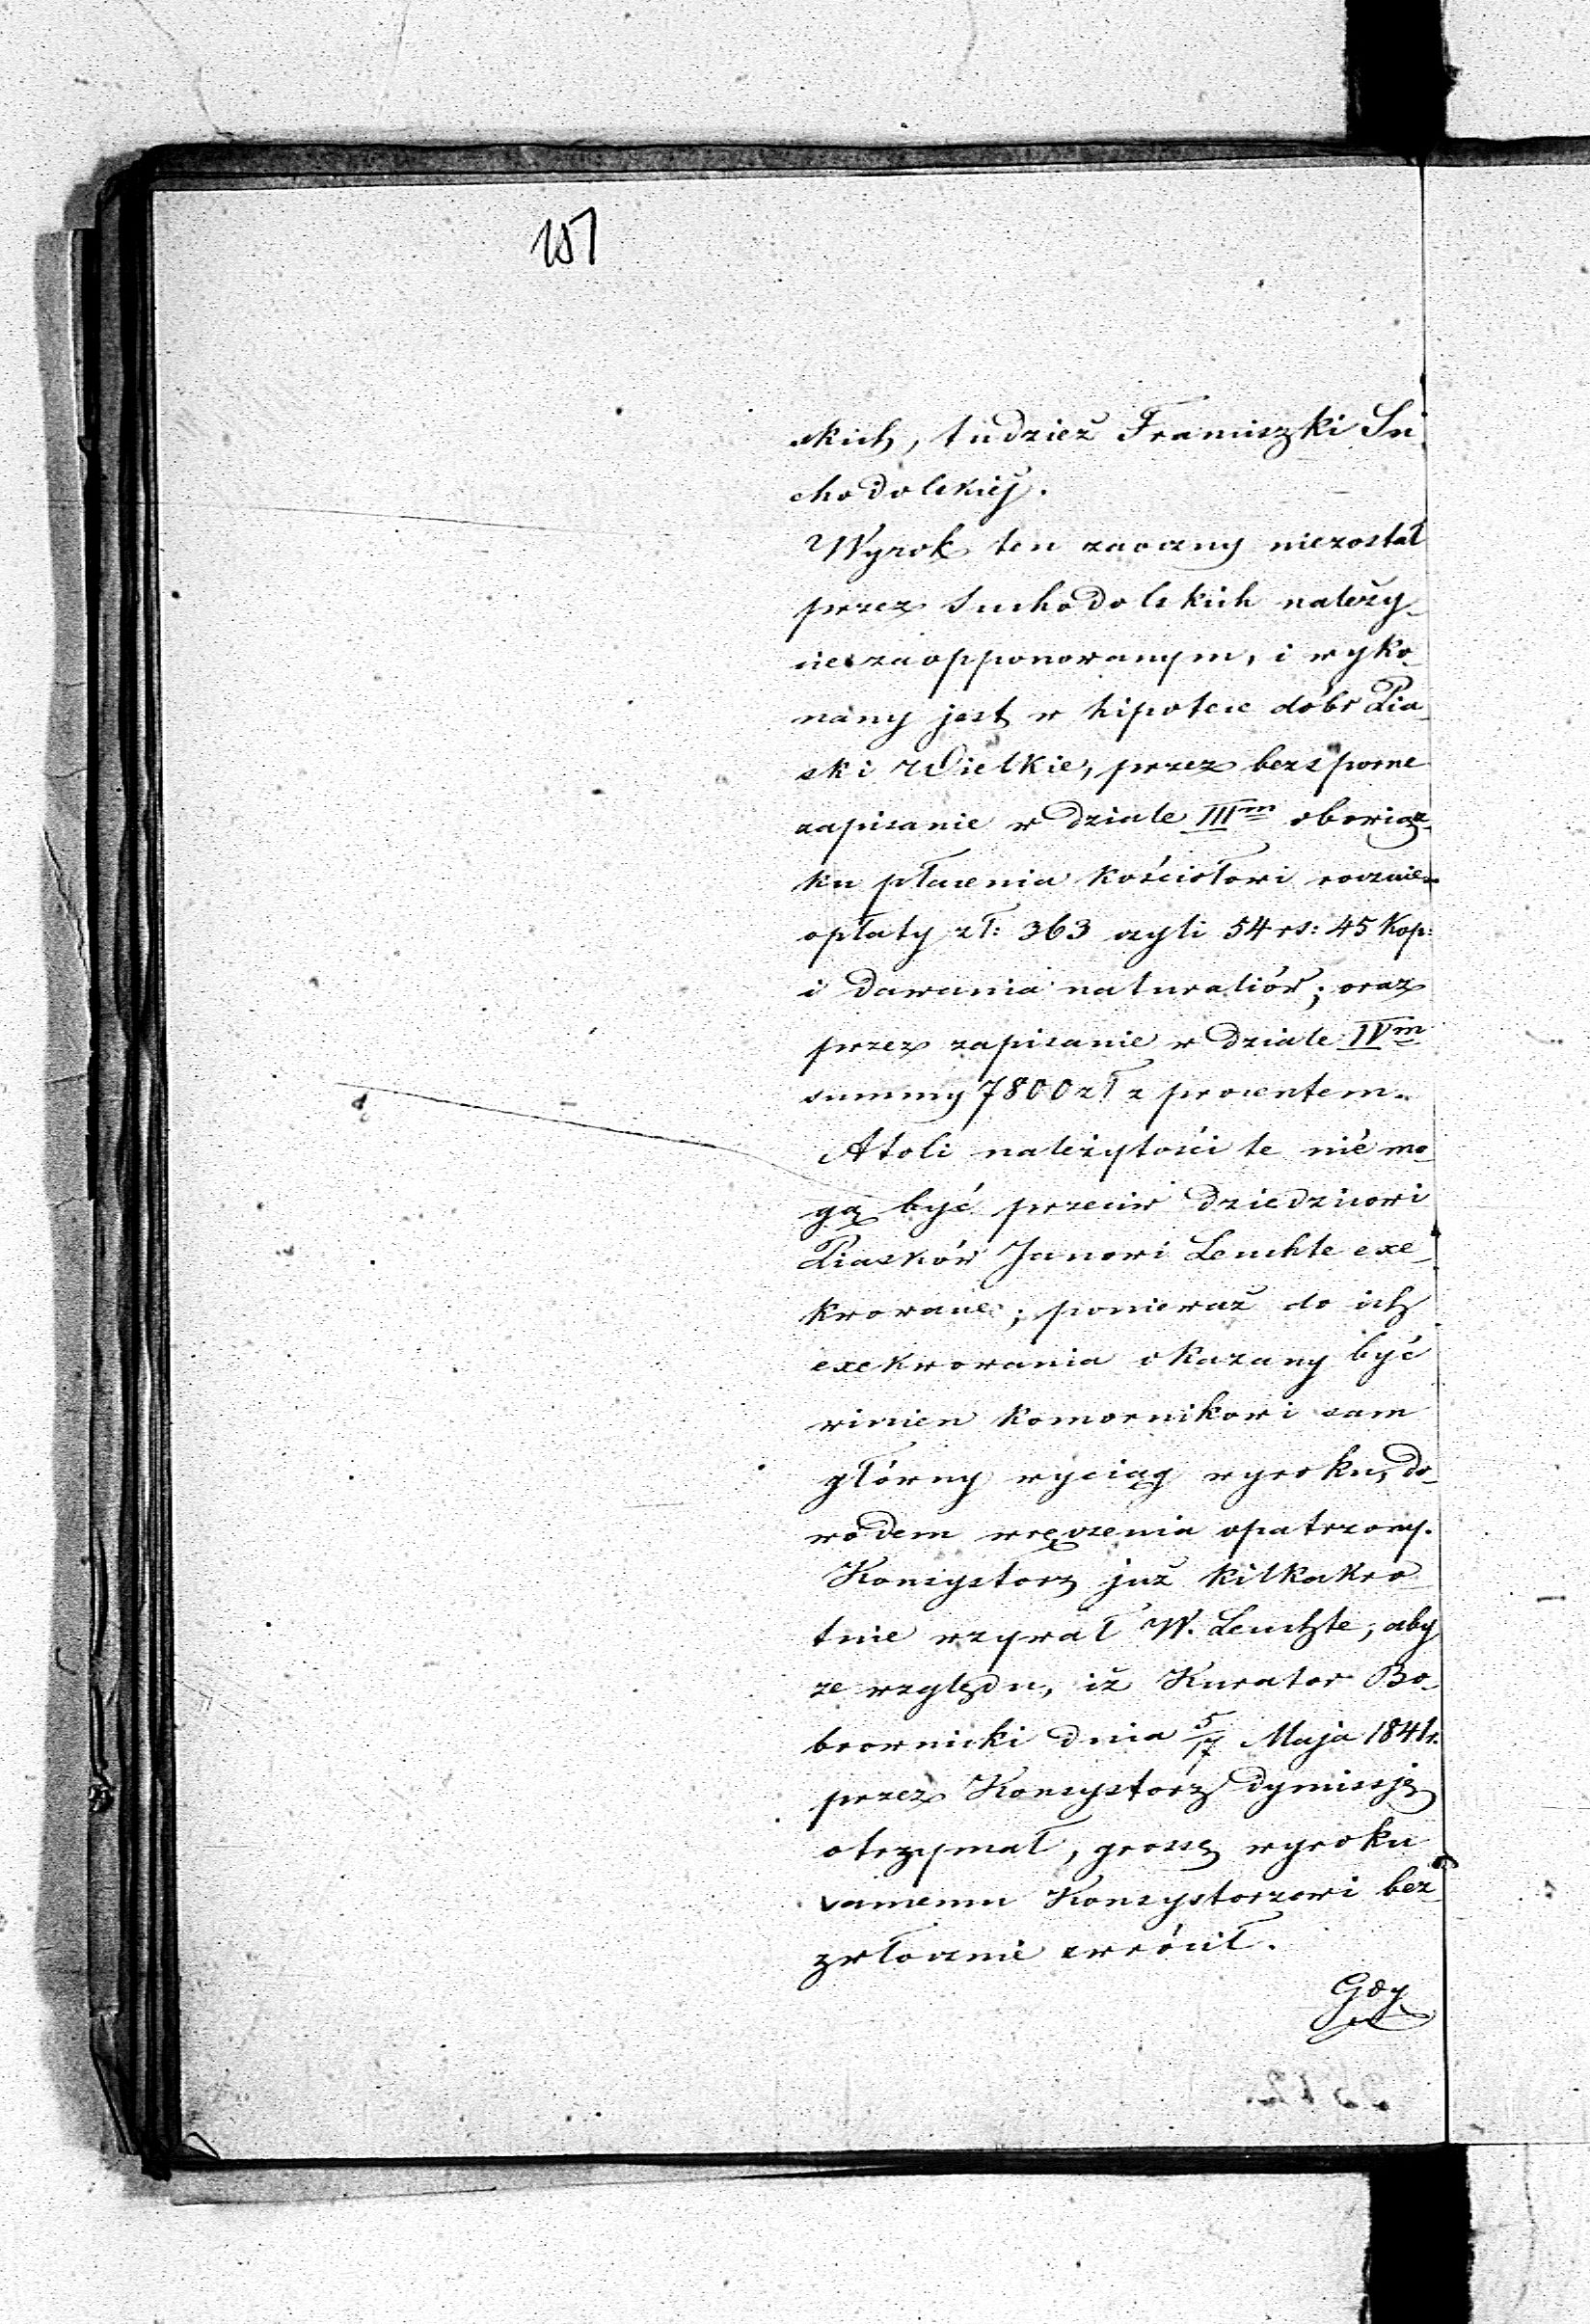 107
skich, tudzież Franciszki Su
chodolskiéj.
Wyrok ten zaoczny niezostał
przez Suchodolskich należy-
cie zaopponowanym, i wyko-
nany jest w hipotece dóbr Pia-
ski Wielkie, przez bezsporne
zapisanie w dziale IIIm obowiąz-
ku płacenia kościołowi rocznie
opłaty zł: 363 czyli 54 rs: 45 kop:
i dawania naturaliów; oraz
przez zapisanie w dziale IVm
summy 7800 zł z procentem.
Atoli należytości te nié mo-
gą być przeciw dziedzicowi
Piasków Janowi Leuchte exe-
kwowane; ponieważ do ich
exekwowania okazany być
winien komornikowi sam
główny wyciąg wyroku, do-
wodem wręczenia opatrzony.
Konsystorz już kilkakro-
tnie wzywał W. Leuchte, aby
ze względu, iż Kurator Bo-
brownicki dnia 5/17 Maja 1841 r.
przez Konsystorz dymissję
otrzymał, grossę wyroku
samemu Konsystorzowi bez-
zwłocznie zwrócił.
Gdy